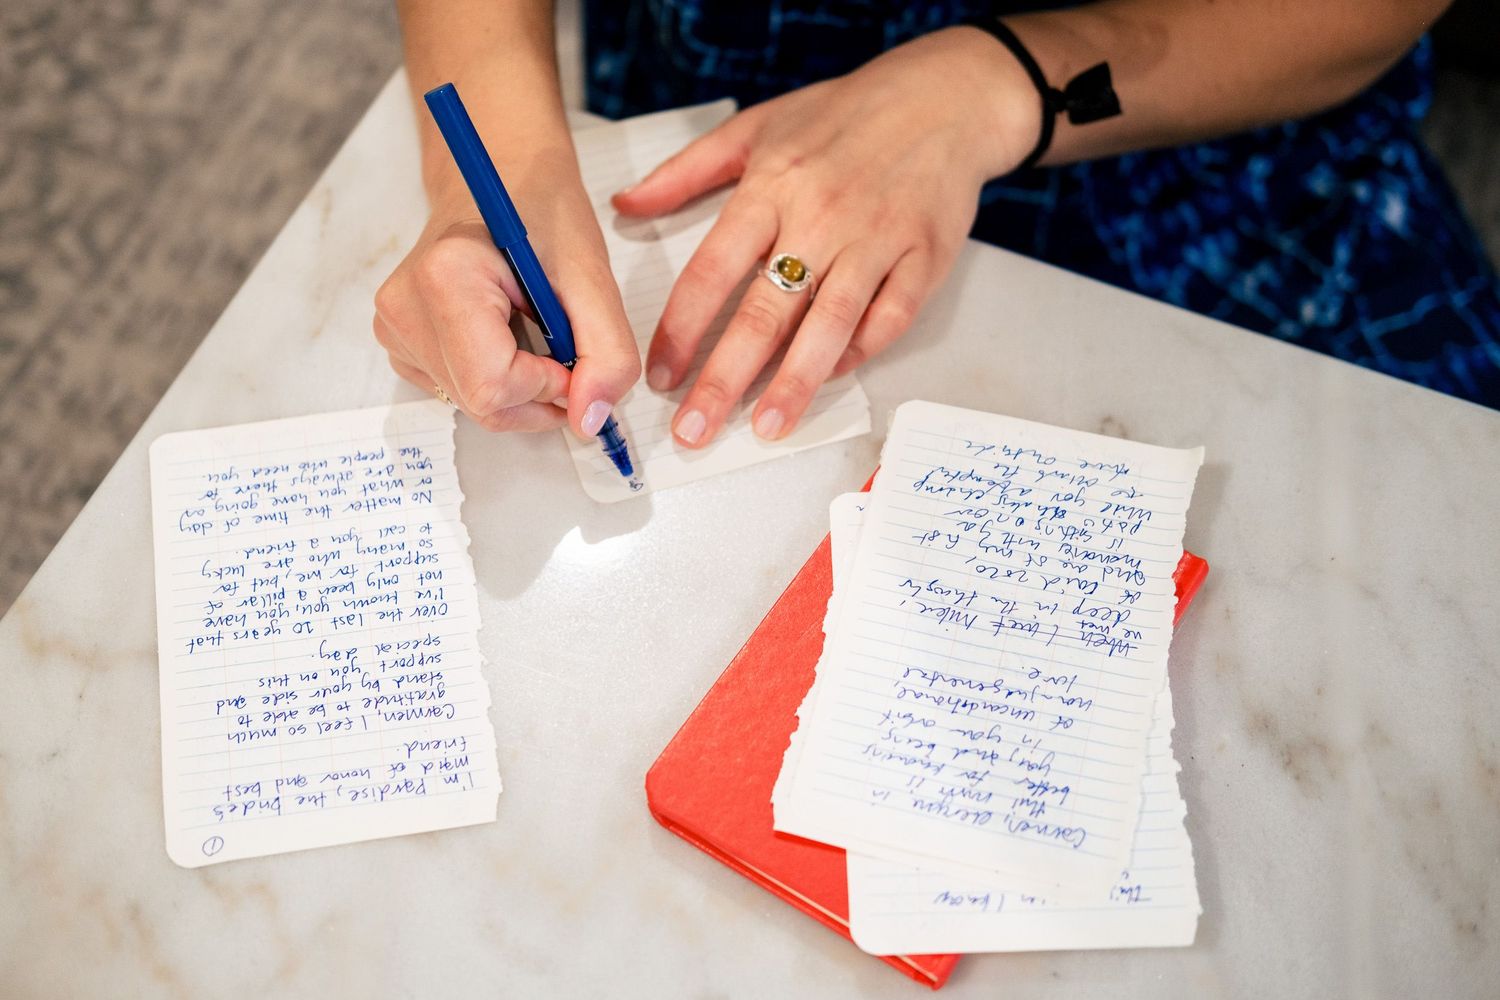 ①
I'm Pardise, the bride's
maid of honor and best
friend.
Carmen, I feel so much
gratitude to be able to
stand by your side and
support you on this
special day.
Over the last 20 years that
I've known you, you have
not only been a pillar of
support for me, but for
so many who are lucky
to call you a friend.
No matter the time of day
or what you have going on
you are always there for
the people who need you.
Carmen, everyone in
this room is
better for knowing
you, and being
in your orbit
of unconditional,
non-judgemental
love.
When I met
we were
deep in the
of Covid 2020,
and one of my first
memories with
is sitting on our
patio
while you attempted
to climb the
tree outside
this
I know